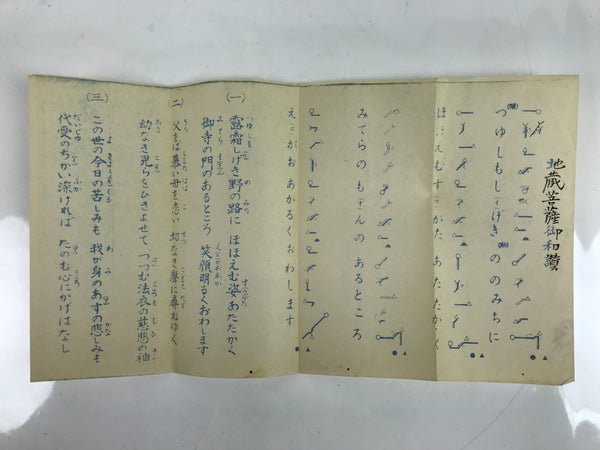 地蔵菩薩御和讃
つゆしもしげき ののみちに
ほほえむすがた あたたかく
みてらのもんの あるところ
えがお あかるくおわします
(一) 露霜しげき野の路に ほほえむ姿あたたかく
御寺の門のあるところ 笑顔明るくおわします
(二) 父をば慕い母を恋い 切なき聲に尋ねゆく
幼なき児らをひきよせて つつむ法衣の慈悲の袖
(三) この世の今日の苦しみも 我が身のあすの悲しみも
代受のちかい深ければ たのむ心にかげはなし